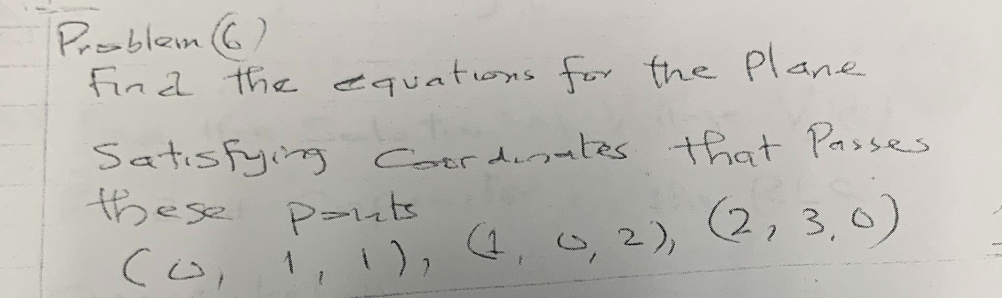 Problem (6)
Find the equations for the Plane
Satisfying Coordinates that Passes
these points
(0, 1, 1), (1, 0, 2), (2, 3, 0)